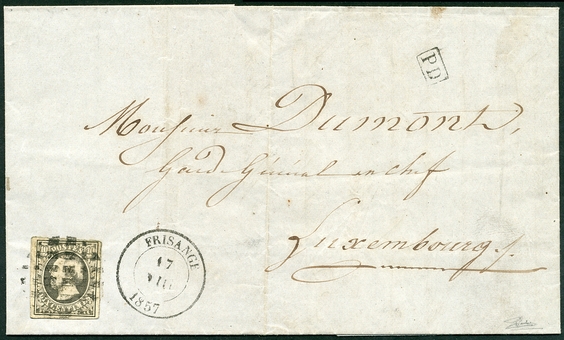 PD
Monsieur Dumont,
Garde Général en chef
Luxembourg
FRISANGE
17
VIII
1857